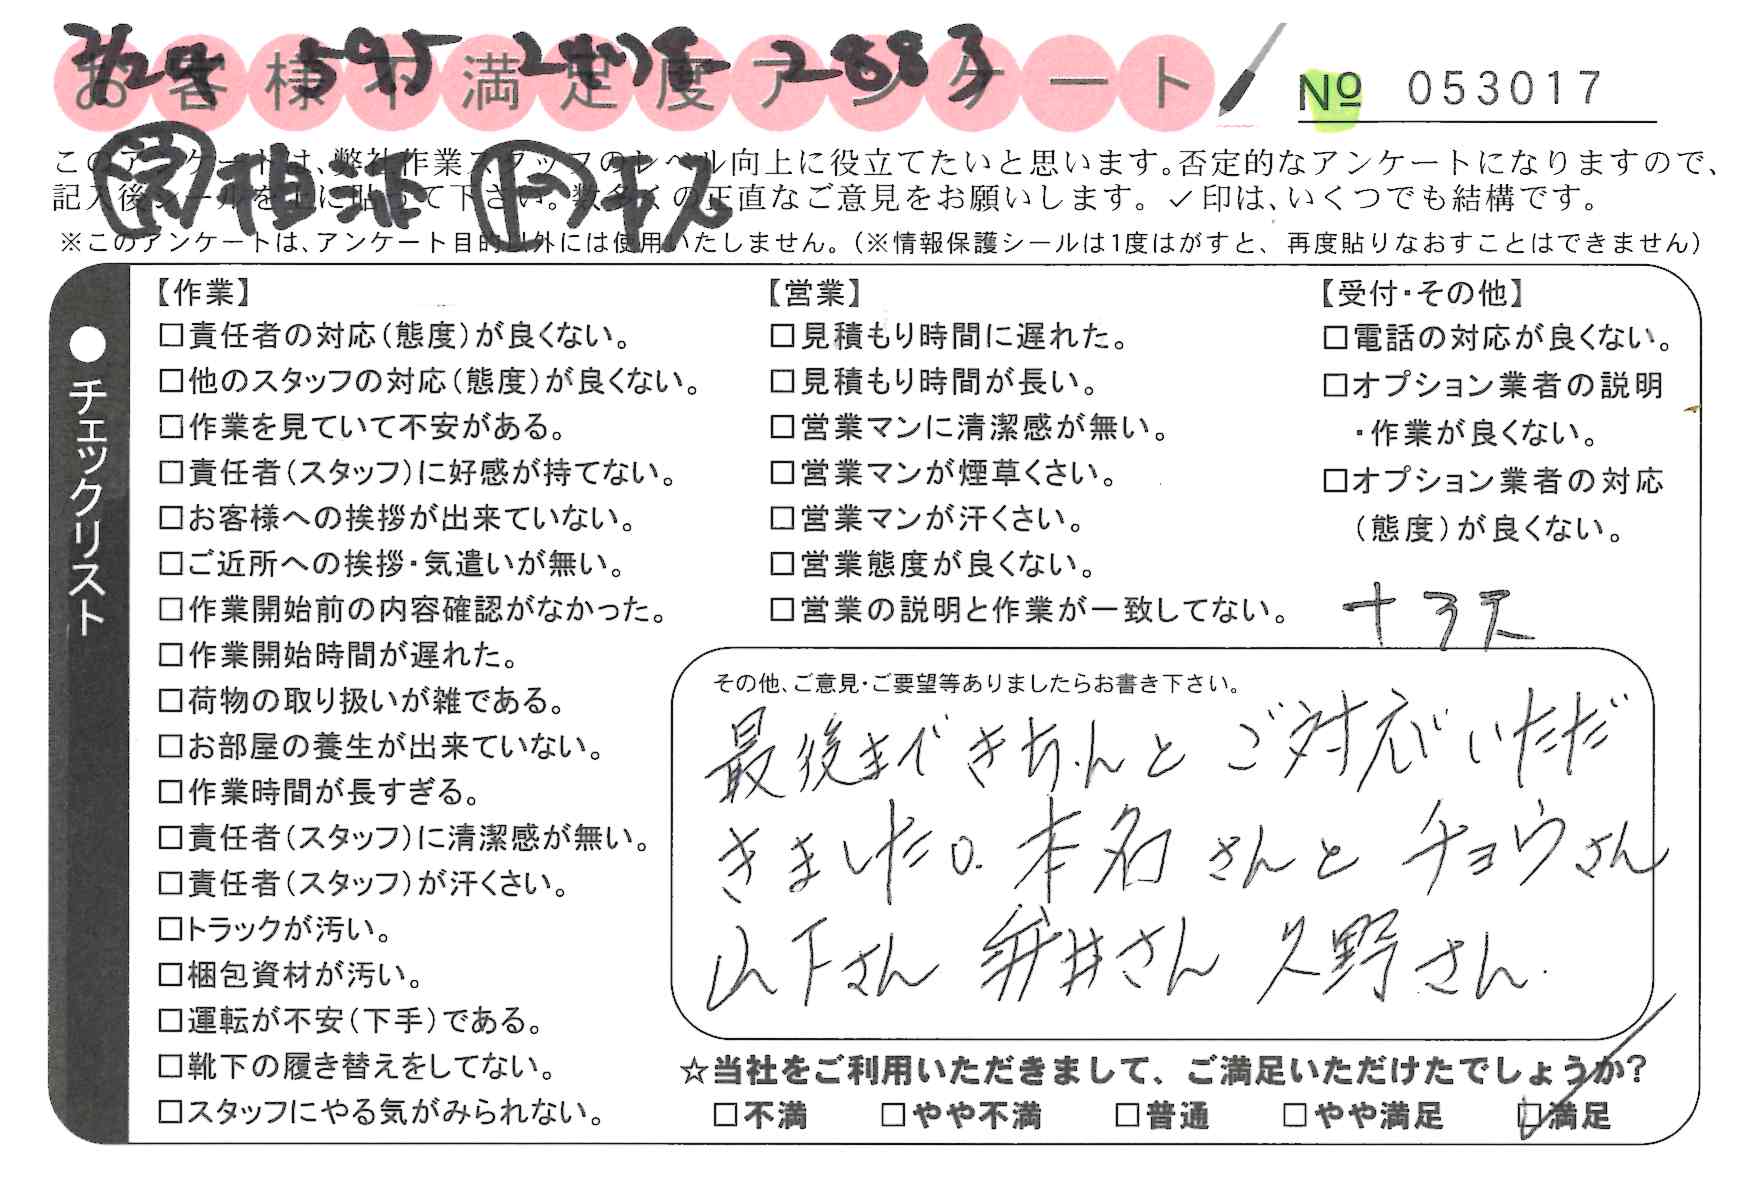 お客様不満足度アンケート
7/24 595 2478-2883
№ 053017
このアンケートは、弊社作業スタッフのレベル向上に役立てたいと思います。否定的なアンケートになりますので、
記入後シールを上に貼って下さい。数多くの正直なご意見をお願いします。✓印は、いくつでも結構です。
※このアンケートは、アンケート目的以外には使用いたしません。(※情報保護シールは1度はがすと、再度貼りなおすことはできません)
●チェックリスト
【作業】
□責任者の対応(態度)が良くない。
□他のスタッフの対応(態度)が良くない。
□作業を見ていて不安がある。
□責任者(スタッフ)に好感が持てない。
□お客様への挨拶が出来ていない。
□ご近所への挨拶・気遣いが無い。
□作業開始前の内容確認がなかった。
□作業開始時間が遅れた。
□荷物の取り扱いが雑である。
□お部屋の養生が出来ていない。
□作業時間が長すぎる。
□責任者(スタッフ)に清潔感が無い。
□責任者(スタッフ)が汗くさい。
□トラックが汚い。
□梱包資材が汚い。
□運転が不安(下手)である。
□靴下の履き替えをしてない。
□スタッフにやる気がみられない。
【営業】
□見積もり時間に遅れた。
□見積もり時間が長い。
□営業マンに清潔感が無い。
□営業マンが煙草くさい。
□営業マンが汗くさい。
□営業態度が良くない。
□営業の説明と作業が一致してない。
【受付・その他】
□電話の対応が良くない。
□オプション業者の説明
・作業が良くない。
□オプション業者の対応
(態度)が良くない。
その他、ご意見・ご要望等ありましたらお書き下さい。
最後まできちんとご対応いただ
きました。本名さんとチョウさん
山下さん 井さん 久野さん.
☆当社をご利用いただきまして、ご満足いただけたでしょうか?
□不満 □やや不満 □普通 □やや満足 ☑満足